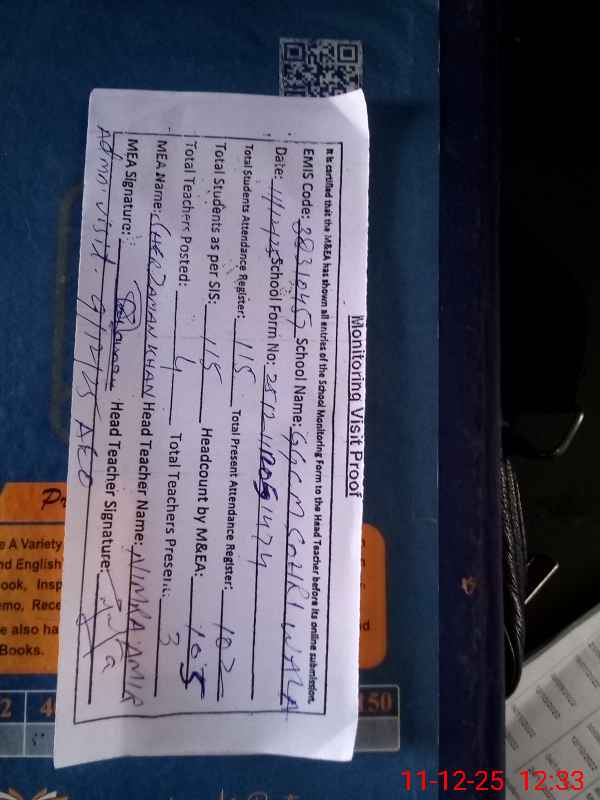 Monitoring Visit Proof
It is certified that the M&EA has shown all entries of the School Monitoring Form to the Head Teacher before its online submission.
EMIS Code: 38310457 School Name: GGCM
Date: 11/12/25 School Form No:
Total Students Attendance Register: 115 Total Present Attendance Register: 102
Total Students as per SIS: 115 Headcount by M&EA: 105
Total Teachers Posted: 4 Total Teachers Present: 3
MEA Name: SHERZAMAN KHAN Head Teacher Name: NIMRA AMIR
MEA Signature: Head Teacher Signature:
Admn. visit. 9/12/25 AEO
A Variety
English
ook, Insp
emo, Rece
e also ha
Books.
150
11-12-25 12:33